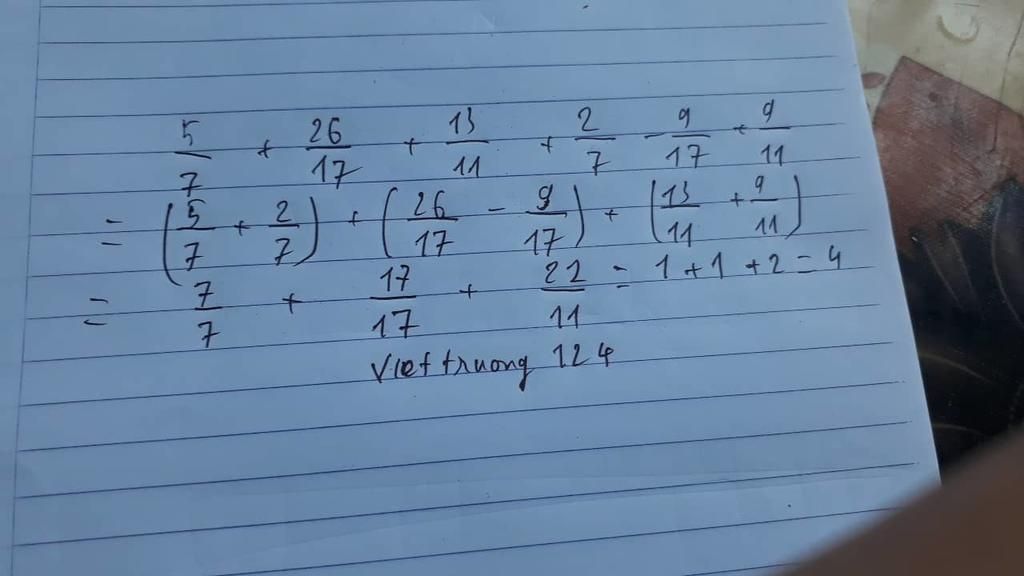 5/7 + 26/17 + 13/11 + 2/7 - 9/17 + 9/11
= (5/7 + 2/7) + (26/17 - 9/17) + (13/11 + 9/11)
= 7/7 + 17/17 + 22/11 = 1 + 1 + 2 = 4
Viettruong 124